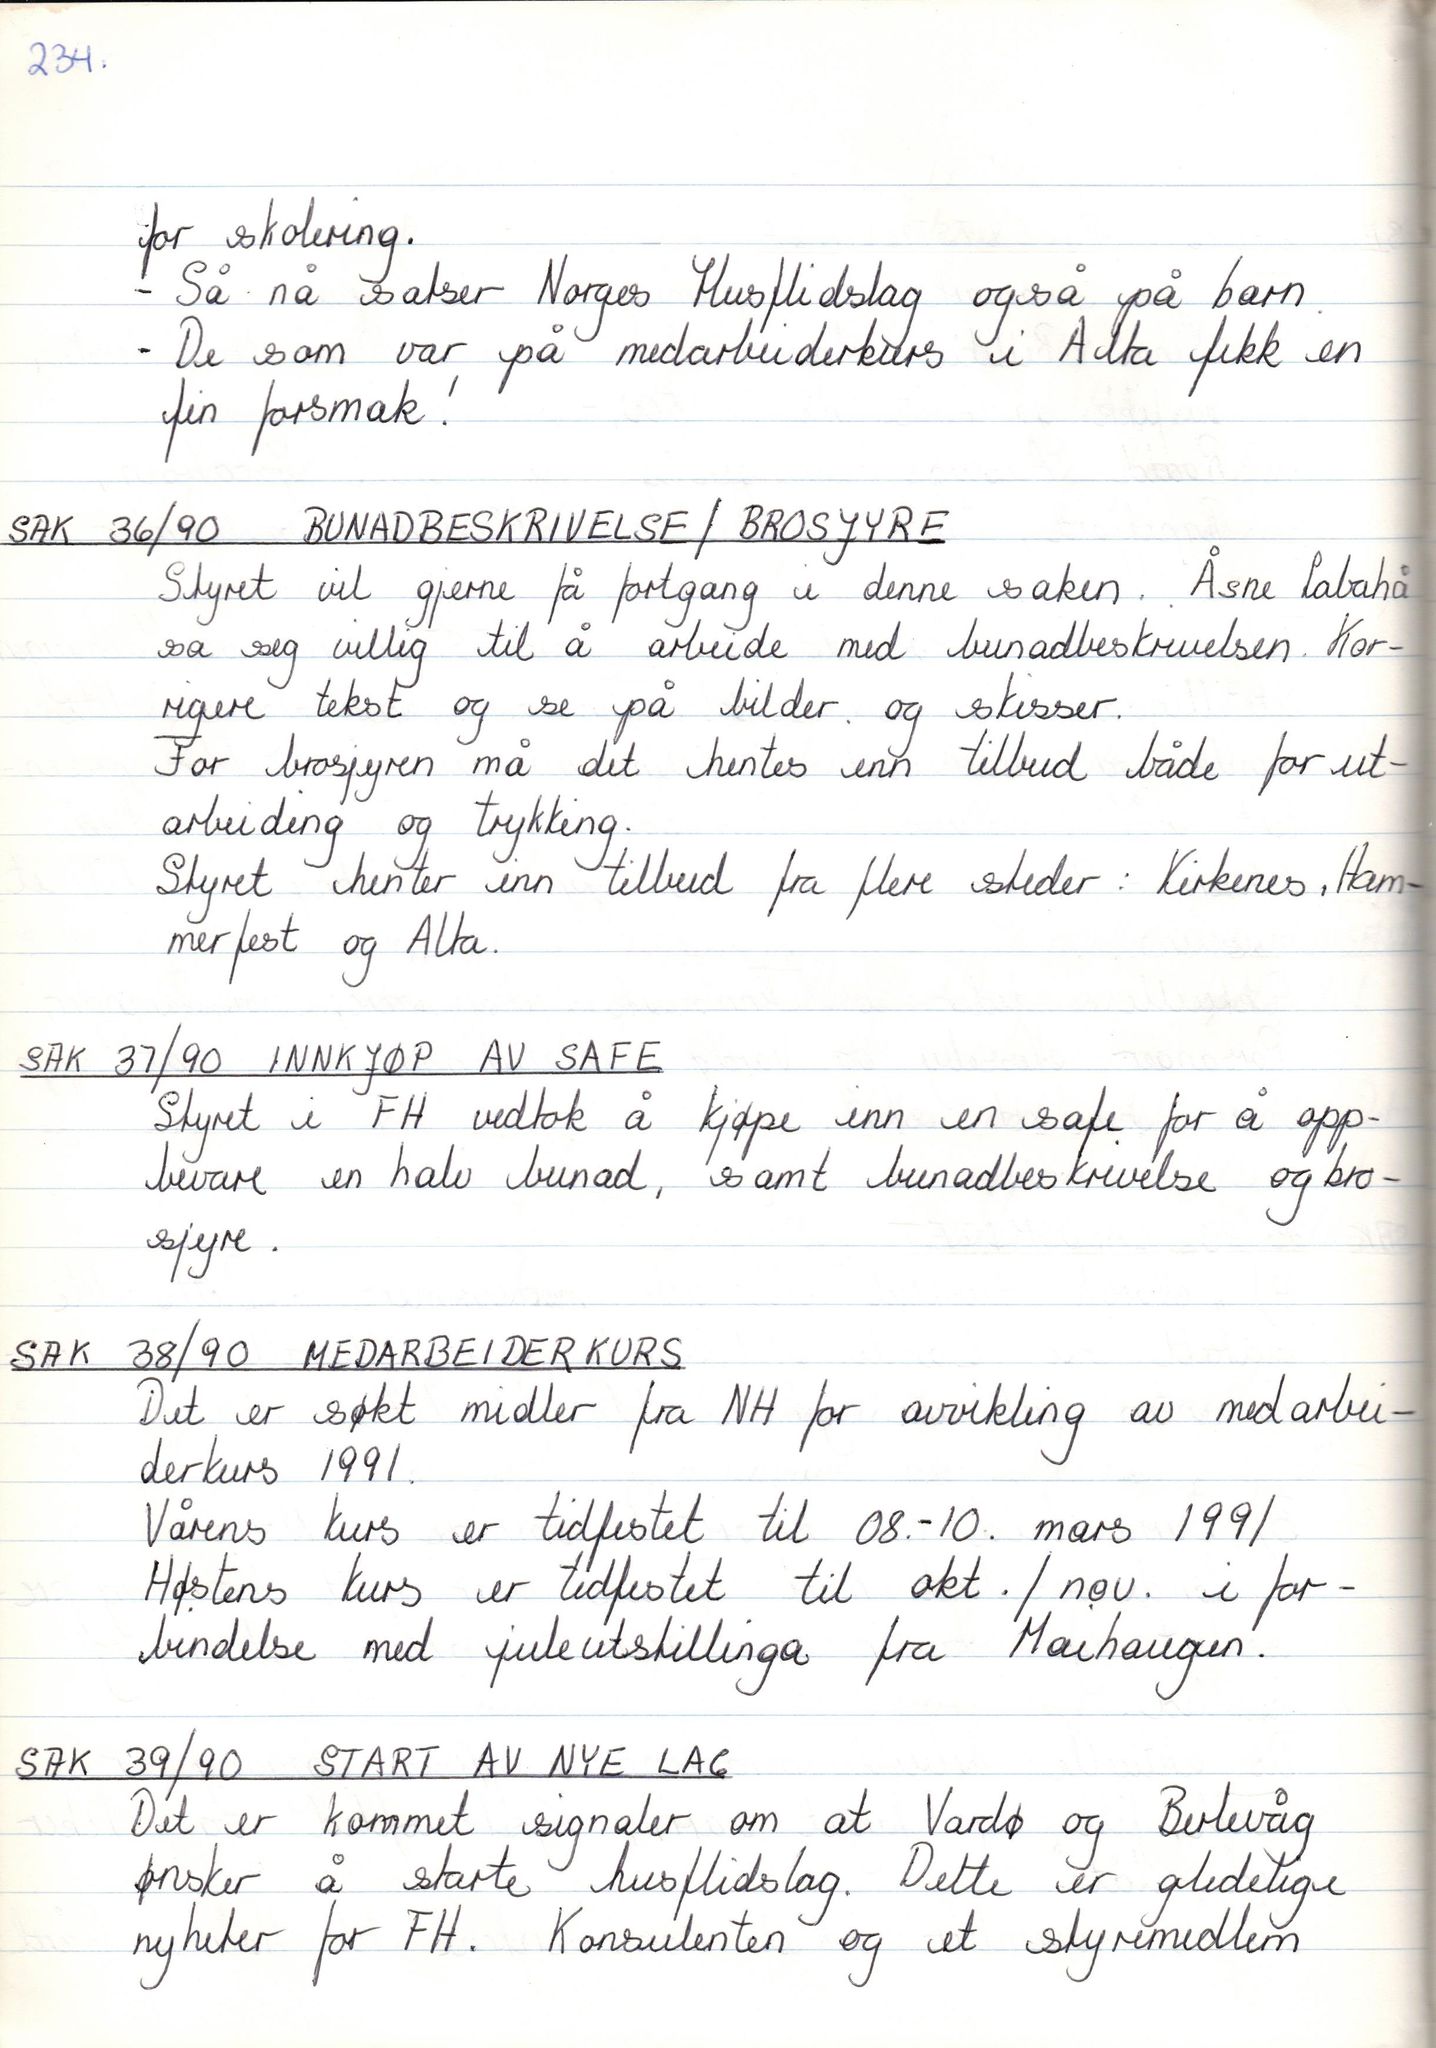 234.
for skolering.
- Så nå satser Norges Husflidslag også på barn.
- De som var på medarbeiderkurs i Alta fikk en
fin forsmak!
SAK 36/90 BUNADBESKRIVELSE/BROSJYRE
Styret vil gjerne få fortgang i denne saken. Åsne Labahå
sa seg villig til å arbeide med bunadbeskrivelsen. Kor-
rigere tekst og se på bilder og skisser.
For brosjyren må det hentes inn tilbud både for ut-
arbeiding og trykking.
Styret henter inn tilbud fra flere steder: Kirkenes, Ham-
merfest og Alta.
SAK 37/90 INNKJØP AV SAFE
Styret i FH vedtok å kjøpe inn en safe for å opp-
bevare en halv bunad, samt bunadbeskrivelse og bro-
sjyre.
SAK 38/90 MEDARBEIDERKURS
Det er søkt midler fra NH for avvikling av medarbei-
derkurs 1991.
Vårens kurs er tidfestet til 08.-10. mars 1991
Høstens kurs er tidfestet til okt./nov. i for-
bindelse med juleutstillinga fra Maihaugen.
SAK 39/90 START AV NYE LAG
Det er kommet signaler om at Vardø og Berlevåg
ønsker å starte husflidslag. Dette er gledelige
nyheter for FH. Konsulenten og et styremedlem